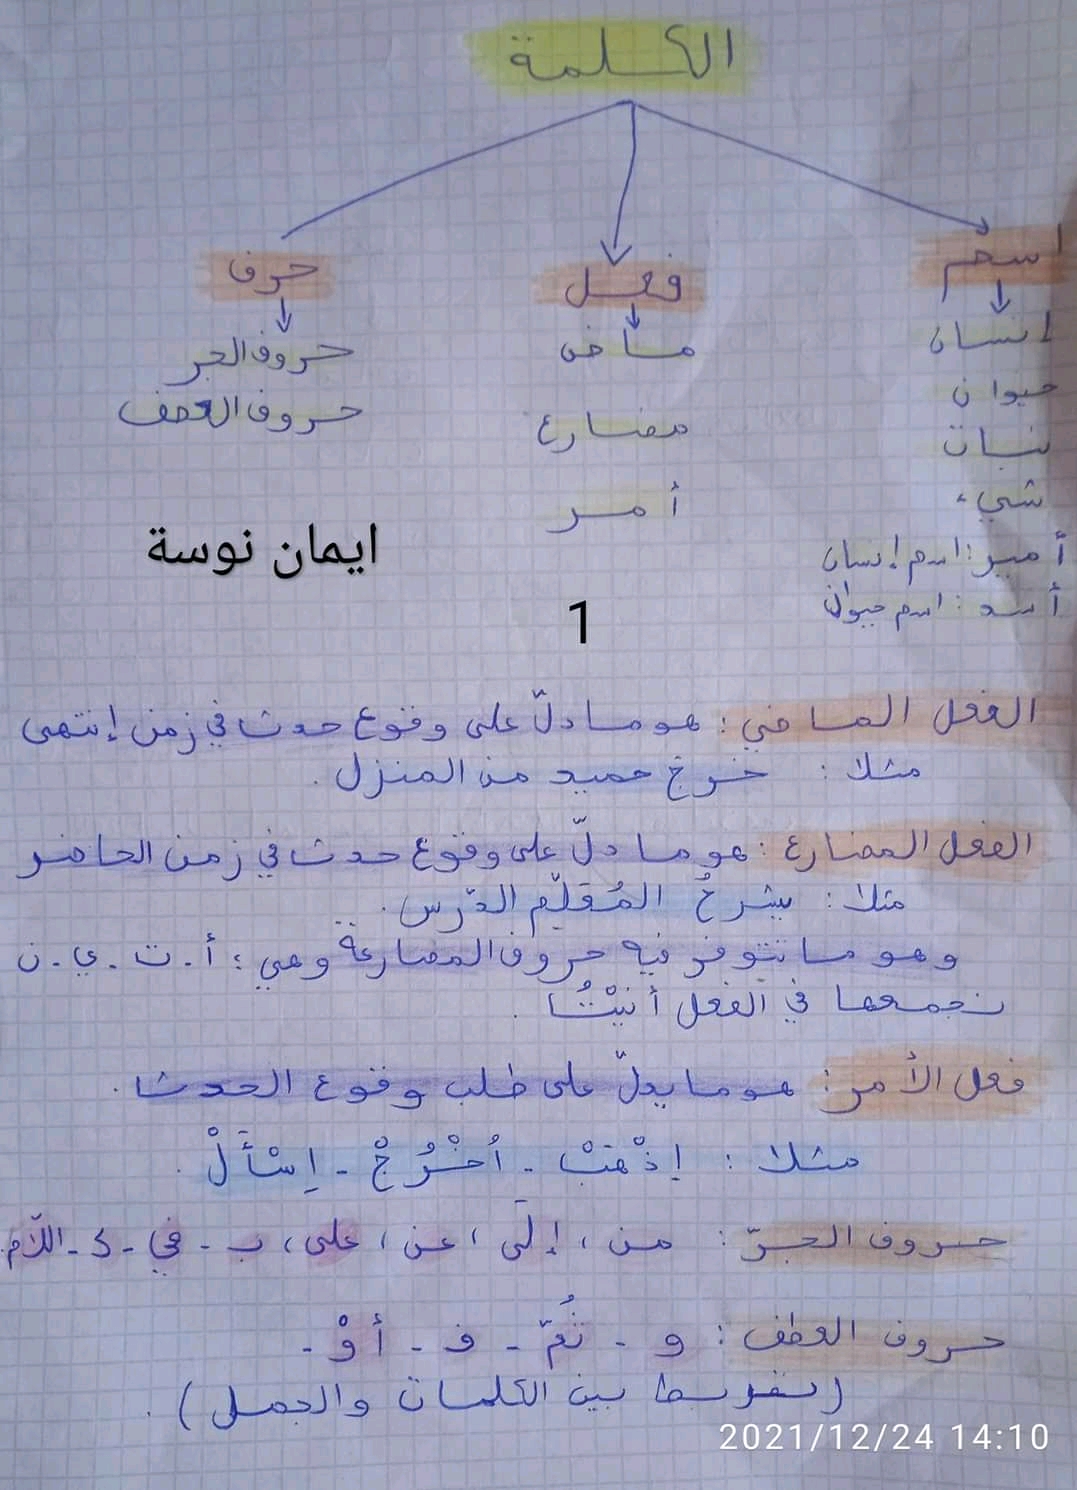 الكلمة
اسم فعل حرف
إنسان ماض حروف الجر
حيوان مضارع حروف العطف
نبات
شيء أمر
أمير : اسم إنسان
أسد : اسم حيوان
ايمان نوسة
1
الفعل الماضي : هو ما دلّ على وقوع حدث في زمن إنتهى
مثلا : خرج حميد من المنزل .
الفعل المضارع : هو ما دلّ على وقوع حدث في زمن الحاضر
مثلا : يشرحُ المُعَلّم الدّرس .
وهو ما تتوفر فيه حروف المضارعة وهي : أ . ت . ي . ن
نجمعها في الفعل أنَيْتُ .
فعل الأمر : هو ما يدلّ على طلب وقوع الحدث .
مثلا : إذْهَبْ - أُخْرُجْ - اِسْأَلْ .
حروف الجرّ : من ، إلَى ، عن ، على ، ب - في - ك - اللّام .
حروف العطف : و - ثُمّ - ف - أوْ .
( بين الكلمات والجمل ) .
2021/12/24 14:10